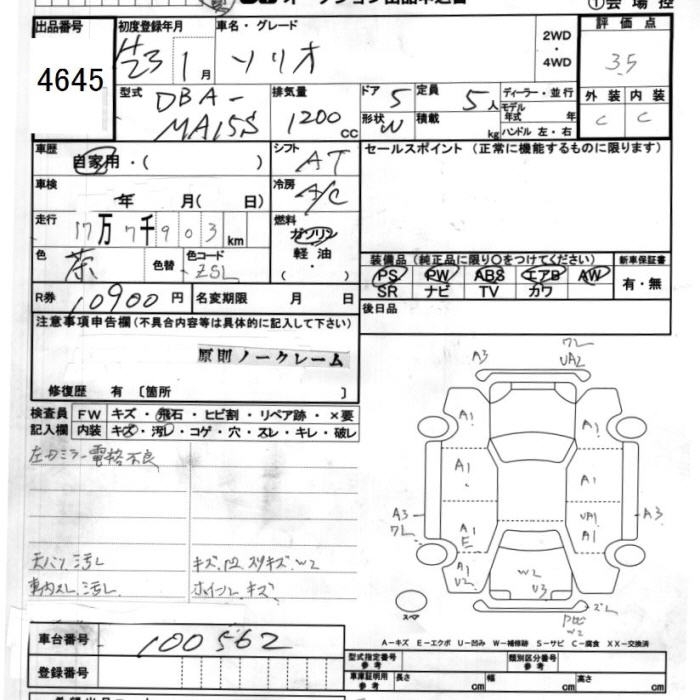 出品番号 初度登録年月 車名・グレード ①会場控
4645 H23 1月 ソリオ 2WD・4WD 評価点 3.5
外装 内装
C C
型式 DBA-MA15S 排気量 1200cc ドア 5 定員 5人 ディーラー・並行
形状 W 積載 kg モデル年式 年
ハンドル 左・右
車歴 自家用・( ) シフト AT セールスポイント(正常に機能するものに限ります)
車検 年 月( 日) 冷房 A/C
走行 17万7千903km 燃料 ガソリン
軽油
・( )
色 茶 色替 色コード ZSL
装備品(純正品に限り○をつけてください) 新車保証書
PS PW ABS エアB AW 有・無
SR ナビ TV カワ
R券 10900円 名変期限 月 日 後日品
注意事項申告欄(不具合内容等は具体的に記入して下さい)
原則ノークレーム
修復歴 有 〔箇所 〕
検査員記入欄 FW キズ・飛石・ヒビ割・リペア跡・×要
内装 キズ・汚レ・コゲ・穴・スレ・キレ・破レ
左ドミラー電格不良
天バリ汚レ
車内スレ.汚レ
ホイールキズ
A3
UA2
A1 A1
A1 A1
A3 A1 UA1 A3
E A1
A1 W2
U2 U3
W2
スペア
A-キズ E-エクボ U-凹み W-補修跡 S-サビ C-腐食 XX-交換済
車台番号 100562
登録番号
型式指定番号 参考 類別区分番号 参考
車庫証明用 参考 長さ cm 幅 cm 高さ cm